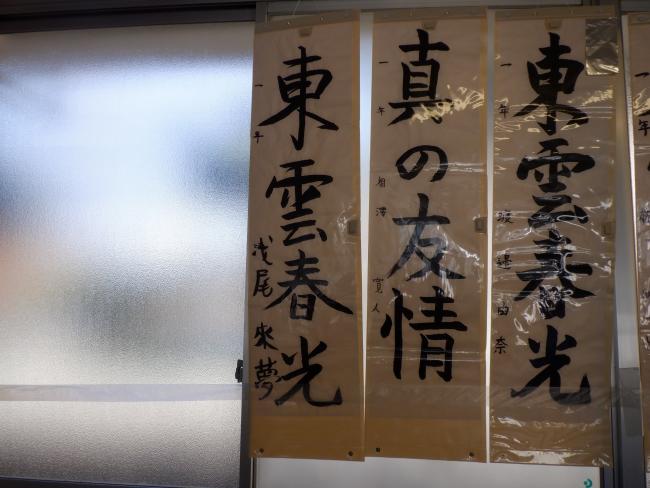 一年
東雲春光
浅尾來夢
一年
真の友情
相澤 寛人
一年
東雲春光
渡邉由奈
一年